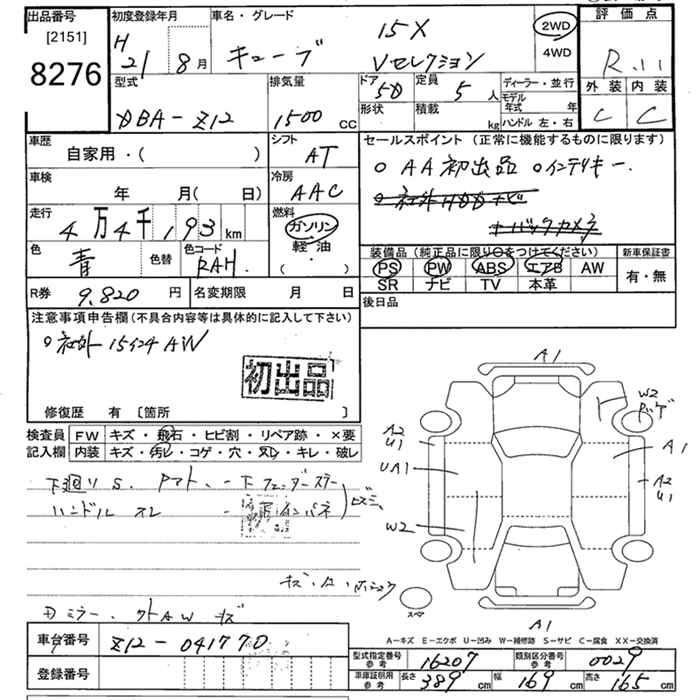 出品番号
[2151]
8276
初度登録年月
H 21年 8月
車名・グレード
キューブ
15X
Vセレクション
2WD
4WD
評価点
R.11
外装 内装
C C
型式
DBA-Z12
排気量
1500 CC
ドア 5D
定員 5人
形状
積載 kg
ディーラー・並行
モデル年式 年
ハンドル 左・右
車歴
自家用・( )
シフト
AT
セールスポイント (正常に機能するものに限ります)
○AA初出品 ○インテリキー.
○社外HDDナビ
+バックカメラ
車検
年 月(日)
冷房
AAC
走行
4万4千193km
燃料
ガソリン
軽油
( ・ )
色
青
色替
色コード
RAH.
装備品 (純正品に限り○をつけてください)
PS PW ABS エアB AW
SR ナビ TV 本革
新車保証書
有・無
R券 9.820円
名変期限 月 日
後日品
注意事項申告欄(不具合内容等は具体的に記入して下さい)
○社外15インチAW
初出品
修復歴 有 [箇所 ]
検査員
記入欄
FW キズ・飛石・ヒビ割・リペア跡・×要
内装 キズ・汚レ・コゲ・穴・スレ・キレ・破レ
下廻りS.
ハンドルスレ
A1
W2
A2
U1
UA1
W2
A1
A2
U1
スペア
A1
A-キズ E-エクボ U-凹み W-補修跡 S-サビ C-腐食 XX-交換済
車台番号 Z12-041770
登録番号
型式指定番号 参考 16207
類別区分番号 参考 0029
車庫証明用 参考 長さ 389 cm 幅 169 cm 高さ 165 cm